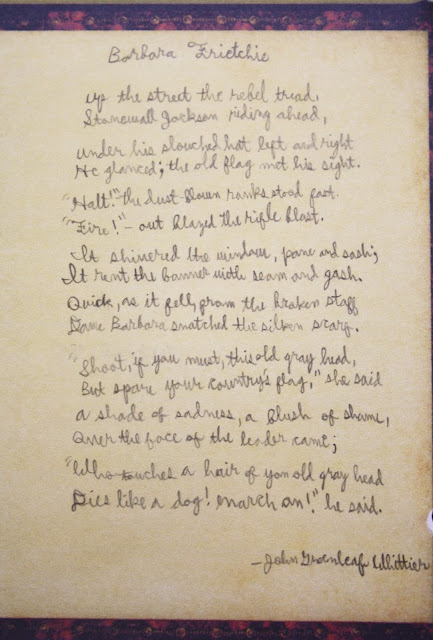 Barbara Frietchie
up the street the rebel tread,
Stonewall Jackson riding ahead,
under his slouched hat left and right
He glanced; the old flag met his sight.
"Halt!" the dust-blown ranks stood fast.
"Fire!" – out blazed the rifle blast.
It shivered the window, pane and sash;
It rent the banner with seam and gash.
Quick, as it fell, from the broken staff
Dame Barbara snatched the silken scarf.
"Shoot, if you must, this old gray head,
But spare your country's flag," she said
a shade of sadness, a blush of shame,
Over the face of the leader came;
"Who touches a hair of yon old gray head
Dies like a dog! march on!" he said.
– John Greenleaf Whittier